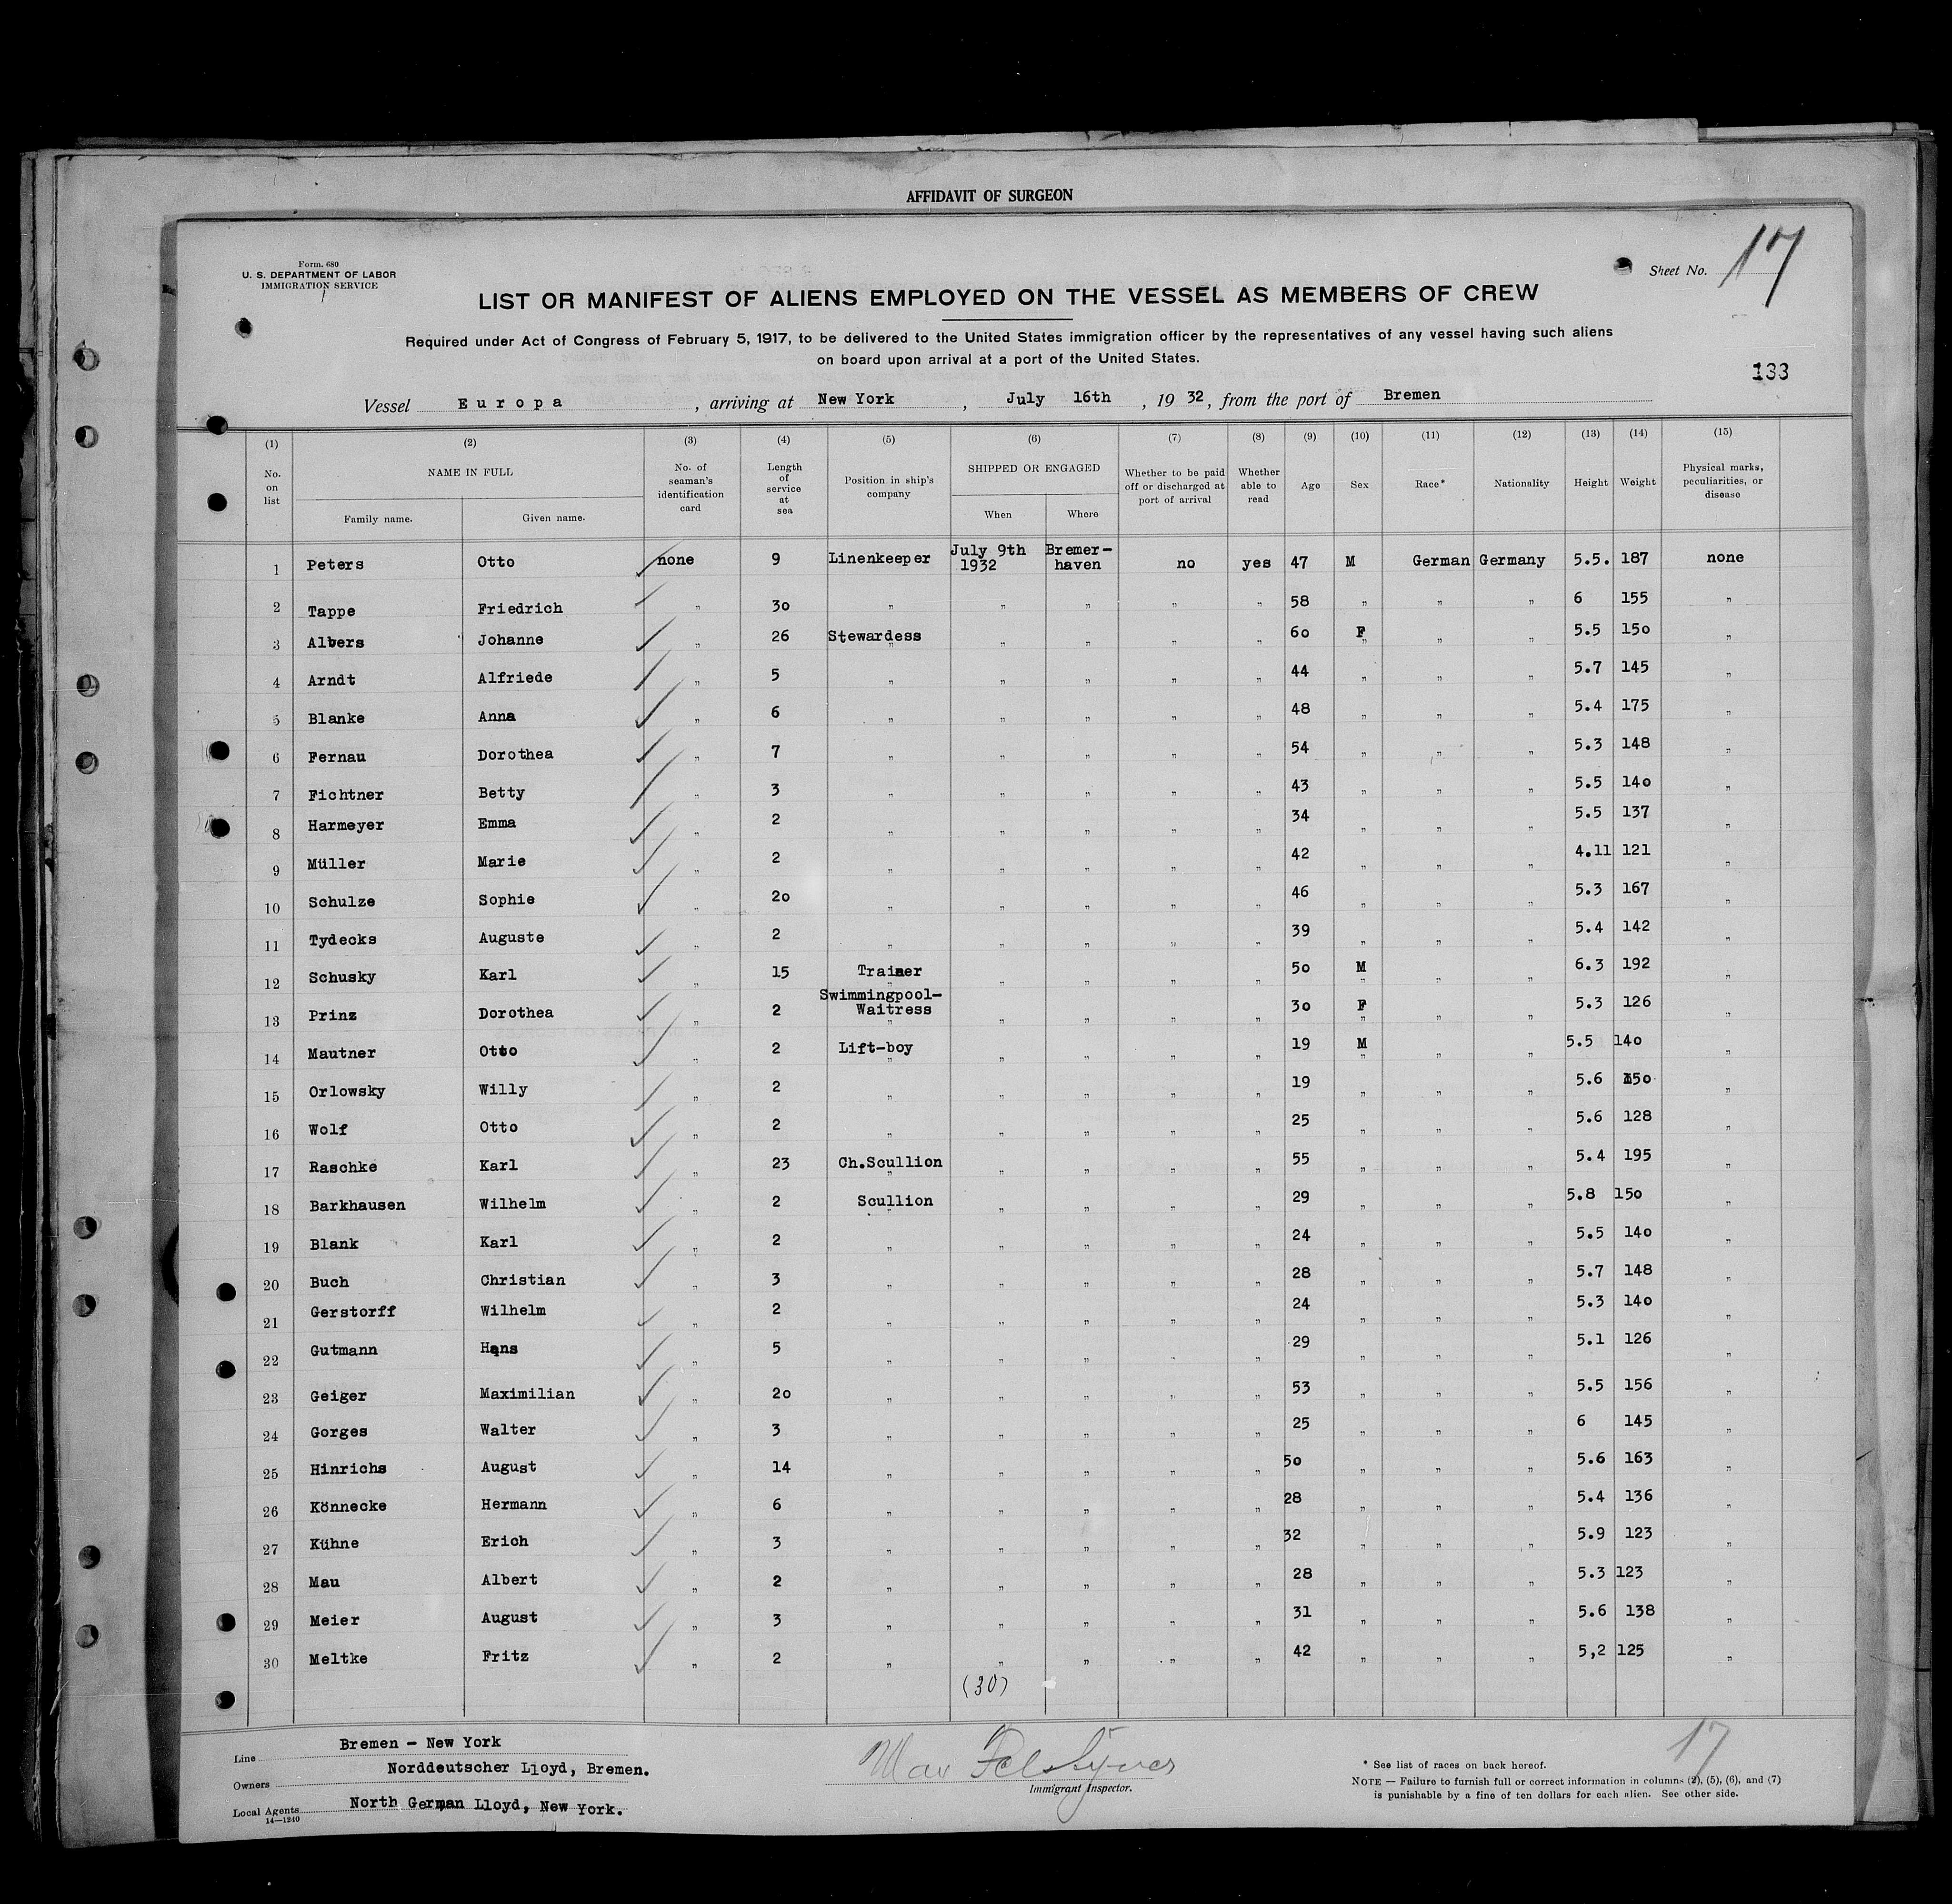 AFFIDAVIT OF SURGEON
Form. 680
U. S. DEPARTMENT OF LABOR
IMMIGRATION SERVICE
Sheet No. 17
LIST OR MANIFEST OF ALIENS EMPLOYED ON THE VESSEL AS MEMBERS OF CREW
Required under Act of Congress of February 5, 1917, to be delivered to the United States immigration officer by the representatives of any vessel having such aliens
on board upon arrival at a port of the United States.
133
Vessel Europa, arriving at New York, July 16th, 1932, from the port of Bremen
(1) (2) (3) (4) (5) (6) (7) (8) (9) (10) (11) (12) (13) (14) (15)
No. on list NAME IN FULL Family name. Given name. No. of seaman's identification card Length of service at sea Position in ship's company SHIPPED OR ENGAGED When Where Whether to be paid off or discharged at port of arrival Whether able to read Age Sex Race* Nationality Height Weight Physical marks, peculiarities, or disease
1 Peters Otto none 9 Linenkeeper July 9th 1932 Bremer-haven no yes 47 M German Germany 5.5. 187 none
2 Tappe Friedrich " 30 " " " " " 58 " " " 6 155 "
3 Albers Johanne " 26 Stewardess " " " " 60 F " " 5.5 150 "
4 Arndt Alfriede " 5 " " " " " 44 " " " 5.7 145 "
5 Blanke Anna " 6 " " " " " 48 " " " 5.4 175 "
6 Fernau Dorothea " 7 " " " " " 54 " " " 5.3 148 "
7 Fichtner Betty " 3 " " " " " 43 " " " 5.5 140 "
8 Harmeyer Emma " 2 " " " " " 34 " " " 5.5 137 "
9 Müller Marie " 2 " " " " " 42 " " " 4.11 121 "
10 Schulze Sophie " 20 " " " " " 46 " " " 5.3 167 "
11 Tydecks Auguste " 2 " " " " " 39 " " " 5.4 142 "
12 Schusky Karl " 15 Trainer " " " " 50 M " " 6.3 192 "
13 Prinz Dorothea " 2 Swimmingpool-Waitress " " " " 30 F " " 5.3 126 "
14 Mautner Otto " 2 Lift-boy " " " " 19 M " " 5.5 140 "
15 Orlowsky Willy " 2 " " " " " 19 " " " 5.6 150 "
16 Wolf Otto " 2 " " " " " 25 " " " 5.6 128 "
17 Raschke Karl " 23 Ch.Scullion " " " " 55 " " " 5.4 195 "
18 Barkhausen Wilhelm " 2 Scullion " " " " 29 " " " 5.8 150 "
19 Blank Karl " 2 " " " " " 24 " " " 5.5 140 "
20 Buch Christian " 3 " " " " " 28 " " " 5.7 148 "
21 Gerstorff Wilhelm " 2 " " " " " 24 " " " 5.3 140 "
22 Gutmann Hans " 5 " " " " " 29 " " " 5.1 126 "
23 Geiger Maximilian " 20 " " " " " 53 " " " 5.5 156 "
24 Gorges Walter " 3 " " " " " 25 " " " 6 145 "
25 Hinrichs August " 14 " " " " " 50 " " " 5.6 163 "
26 Könnecke Hermann " 6 " " " " " 28 " " " 5.4 136 "
27 Kühne Erich " 3 " " " " " 32 " " " 5.9 123 "
28 Mau Albert " 2 " " " " " 28 " " " 5.3 123 "
29 Meier August " 3 " " " " " 31 " " " 5.6 138 "
30 Meltke Fritz " 2 " " " " " 42 " " " 5,2 125 "
(30)
Line Bremen - New York
Owners Norddeutscher Lloyd, Bremen.
Local Agents North German Lloyd, New York.
14—1240
Max
Immigrant Inspector.
17
* See list of races on back hereof.
NOTE — Failure to furnish full or correct information in columns (2), (5), (6), and (7)
is punishable by a fine of ten dollars for each alien. See other side.